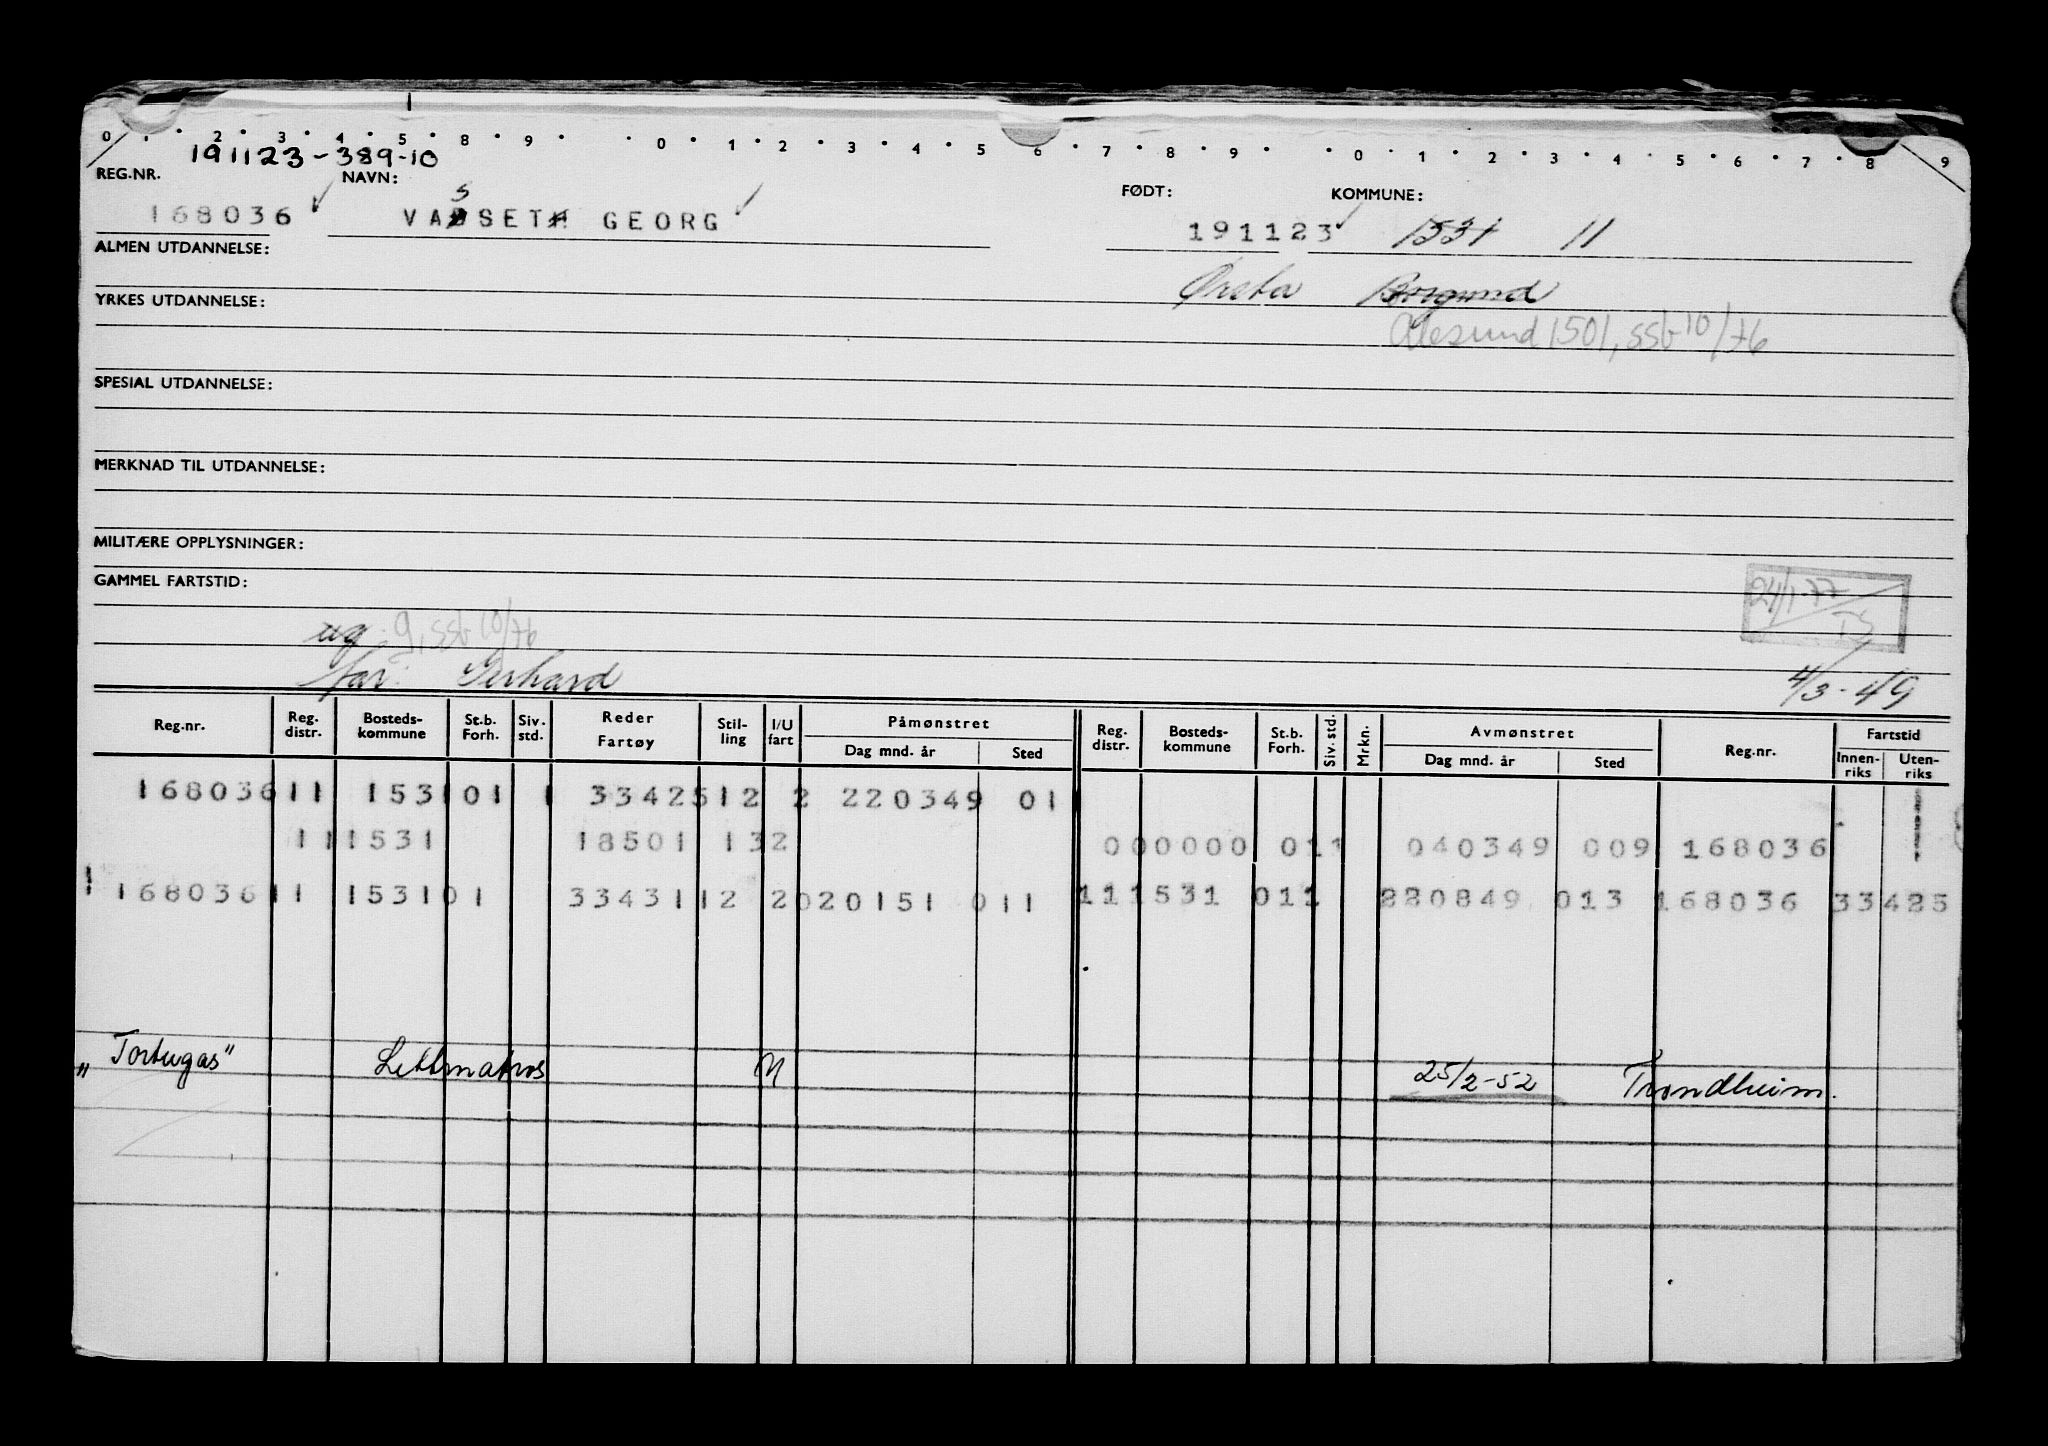 0 . . 2 . 3 . 4 . 5 . 8 . 9 . . 0 . 1 . 2 . 3 . 4 . 5 . 6 . 7 . 8 . 9 . . 0 . 1 . 2 . 3 . 4 . 5 . 6 . 7 . 8 . 9
191123-389-10
REG.NR. NAVN: FØDT: KOMMUNE:
168036 VASSET GEORG 191123 1531 11
ALMEN UTDANNELSE:
Ørsta Borgund
YRKES UTDANNELSE:
Ålesund 1501, SSB 10/76
SPESIAL UTDANNELSE:
MERKNAD TIL UTDANNELSE:
MILITÆRE OPPLYSNINGER:
GAMMEL FARTSTID:
24/1-77
TS
ug. g, SSB 10/76
far: Gerhard 4/3-49
Reg.nr. Reg. distr. Bosteds-kommune St.b. Forh. Siv. std. Reder Fartøy Stil-ling I/U fart Påmønstret Dag mnd. år Sted Reg. distr. Bosteds-kommune St.b. Forh. Siv. std. Mrkn. Avmønstret Dag mnd. år Sted Reg.nr. Fartstid Innen-riks Uten-riks
168036 11 1531 01 1 33425 12 2 220349 01
11 1531 18501 132 000000 011 040349 009 168036
168036 11 1531 01 33431 12 2 020151 011 111531 011 220849 013 168036 33425
"Tortugas" Lettmatros U 25/2-52 Trondheim.